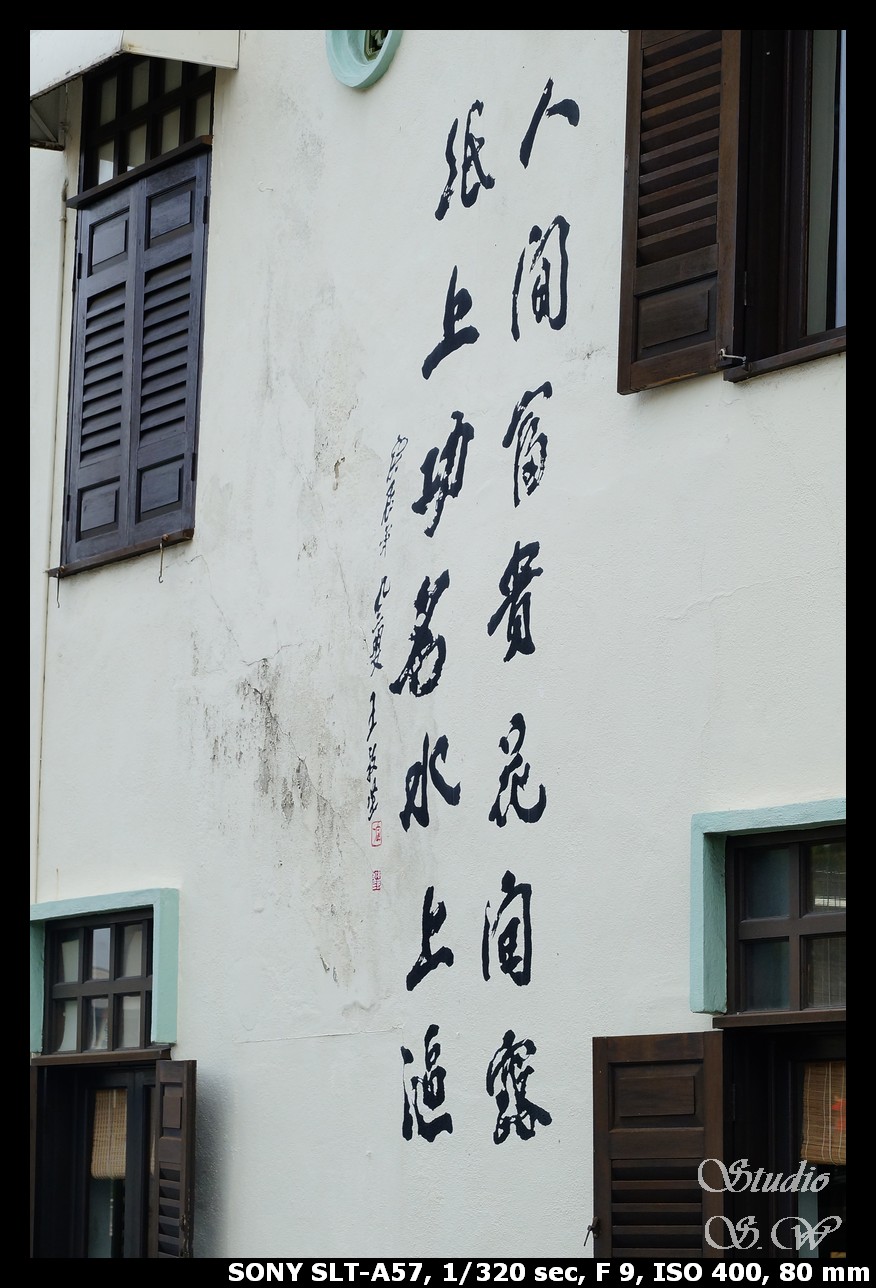 人間富貴花間露
紙上功名水上漚
Studio
S.W
SONY SLT-A57, 1/320 sec, F 9, ISO 400, 80 mm